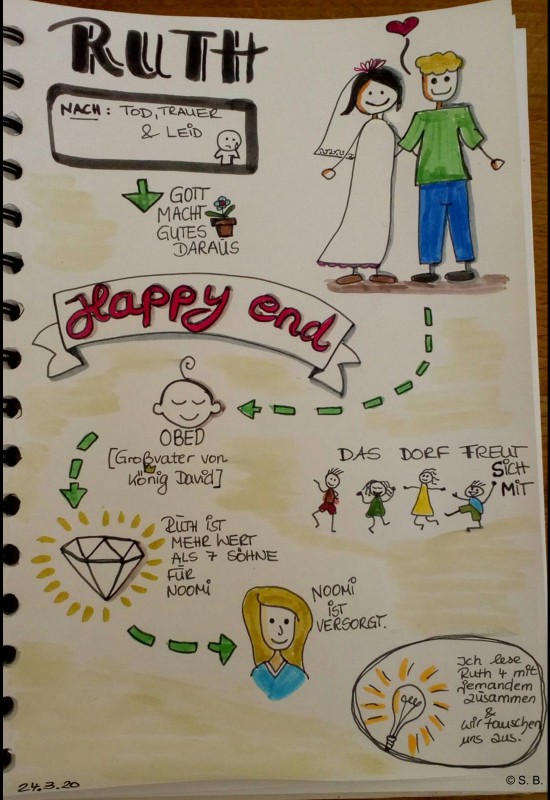 RUTH
NACH: TOD, TRAUER
& LEID
GOTT
MACHT
GUTES
DARAUS
Happy end
OBED
[Großvater von
König David]
DAS DORF FREUT
SICH
MIT
RUTH IST
MEHR WERT
ALS 7 SÖHNE
FÜR
NOOMI
NOOMI
IST
VERSORGT.
Ich lese
Ruth 4 mit
jemandem
zusammen
&
wir tauschen
uns aus.
24.3.20
© S. B.